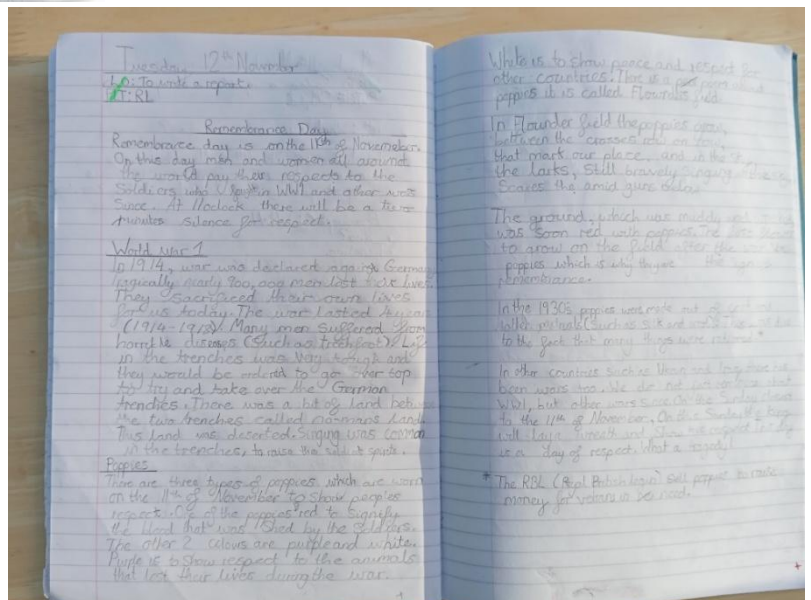 Tuesday 12th November
L.O: To write a report.
RL
Remembrance Day
Remembrance day is on the 11th of November.
On this day men and women all around
the world pay their respects to the
Soldiers who in WW1 and other wars
Since. At 11oclock there will be a two
minutes silence for respect.
World War 1
In 1914, war was declared against German
nearly 900,000 men lost their lives.
They sacrificed their own lives
for us today. The war lasted 4 years
(1914-1918) Many men suffered from
horrible diseases (Such as trenchfoot). Life
in the trenches was very tough and
they would be ordered to go over top
to try and take over the German
trenches. There was a bit of land
the two trenches called nomans land.
This land was deserted. Singing was common
in the trenches, to raise spirits.
Poppies
There are three types of poppies which are worn
on the 11th of November to show peoples
respect. One of the poppies red to signify
the blood that was shed by the soldiers.
The other 2 colours are purple and white.
Purple is to show respect to the animals
that lost their lives during the war.
White is to show peace and respect for
other countries. There is a poem about
poppies it is called Flounders field.
In Flounder field the poppies grow,
between the crosses row on row,
that mark our place, and in the
the larks, Still bravely singing
Scarce the amid guns below
The ground, which was muddy
was soon red with poppies. The first
to grow on the field after the war
poppies which is why a
remembrance.
In the 1930s poppies was made out of
(Such as silk and
to the fact that many things were *
In other countries such as there has
been wars too. We do not
WW1, but other wars since. On the Sunday closest
to the 11th of November. On the Sunday the
will lay a and show
is a day of respect. What a
* The RBL ( British ) sell poppies to raise
money for in need.